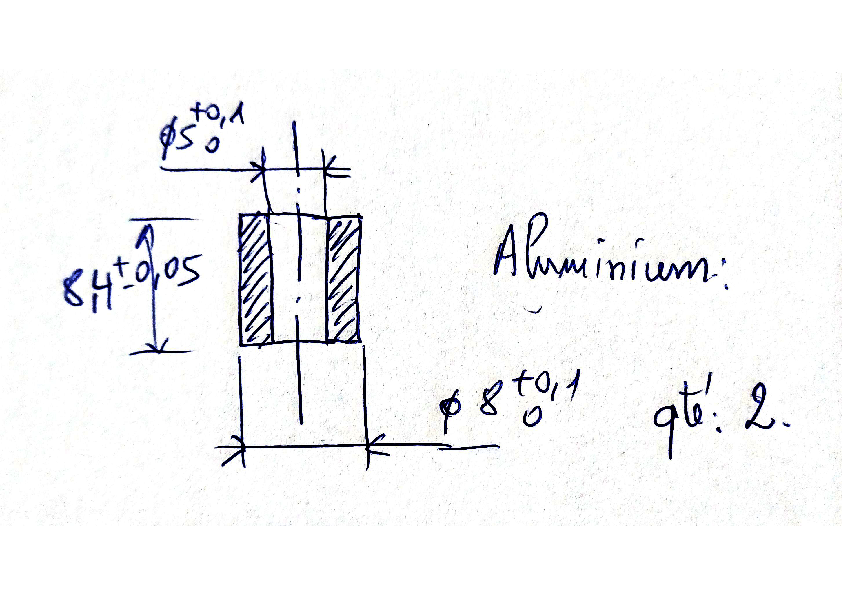 ϕ5 +0,1 0
8,4 ±0,05
Aluminium:
ϕ 8 +0,1 0
qté: 2.